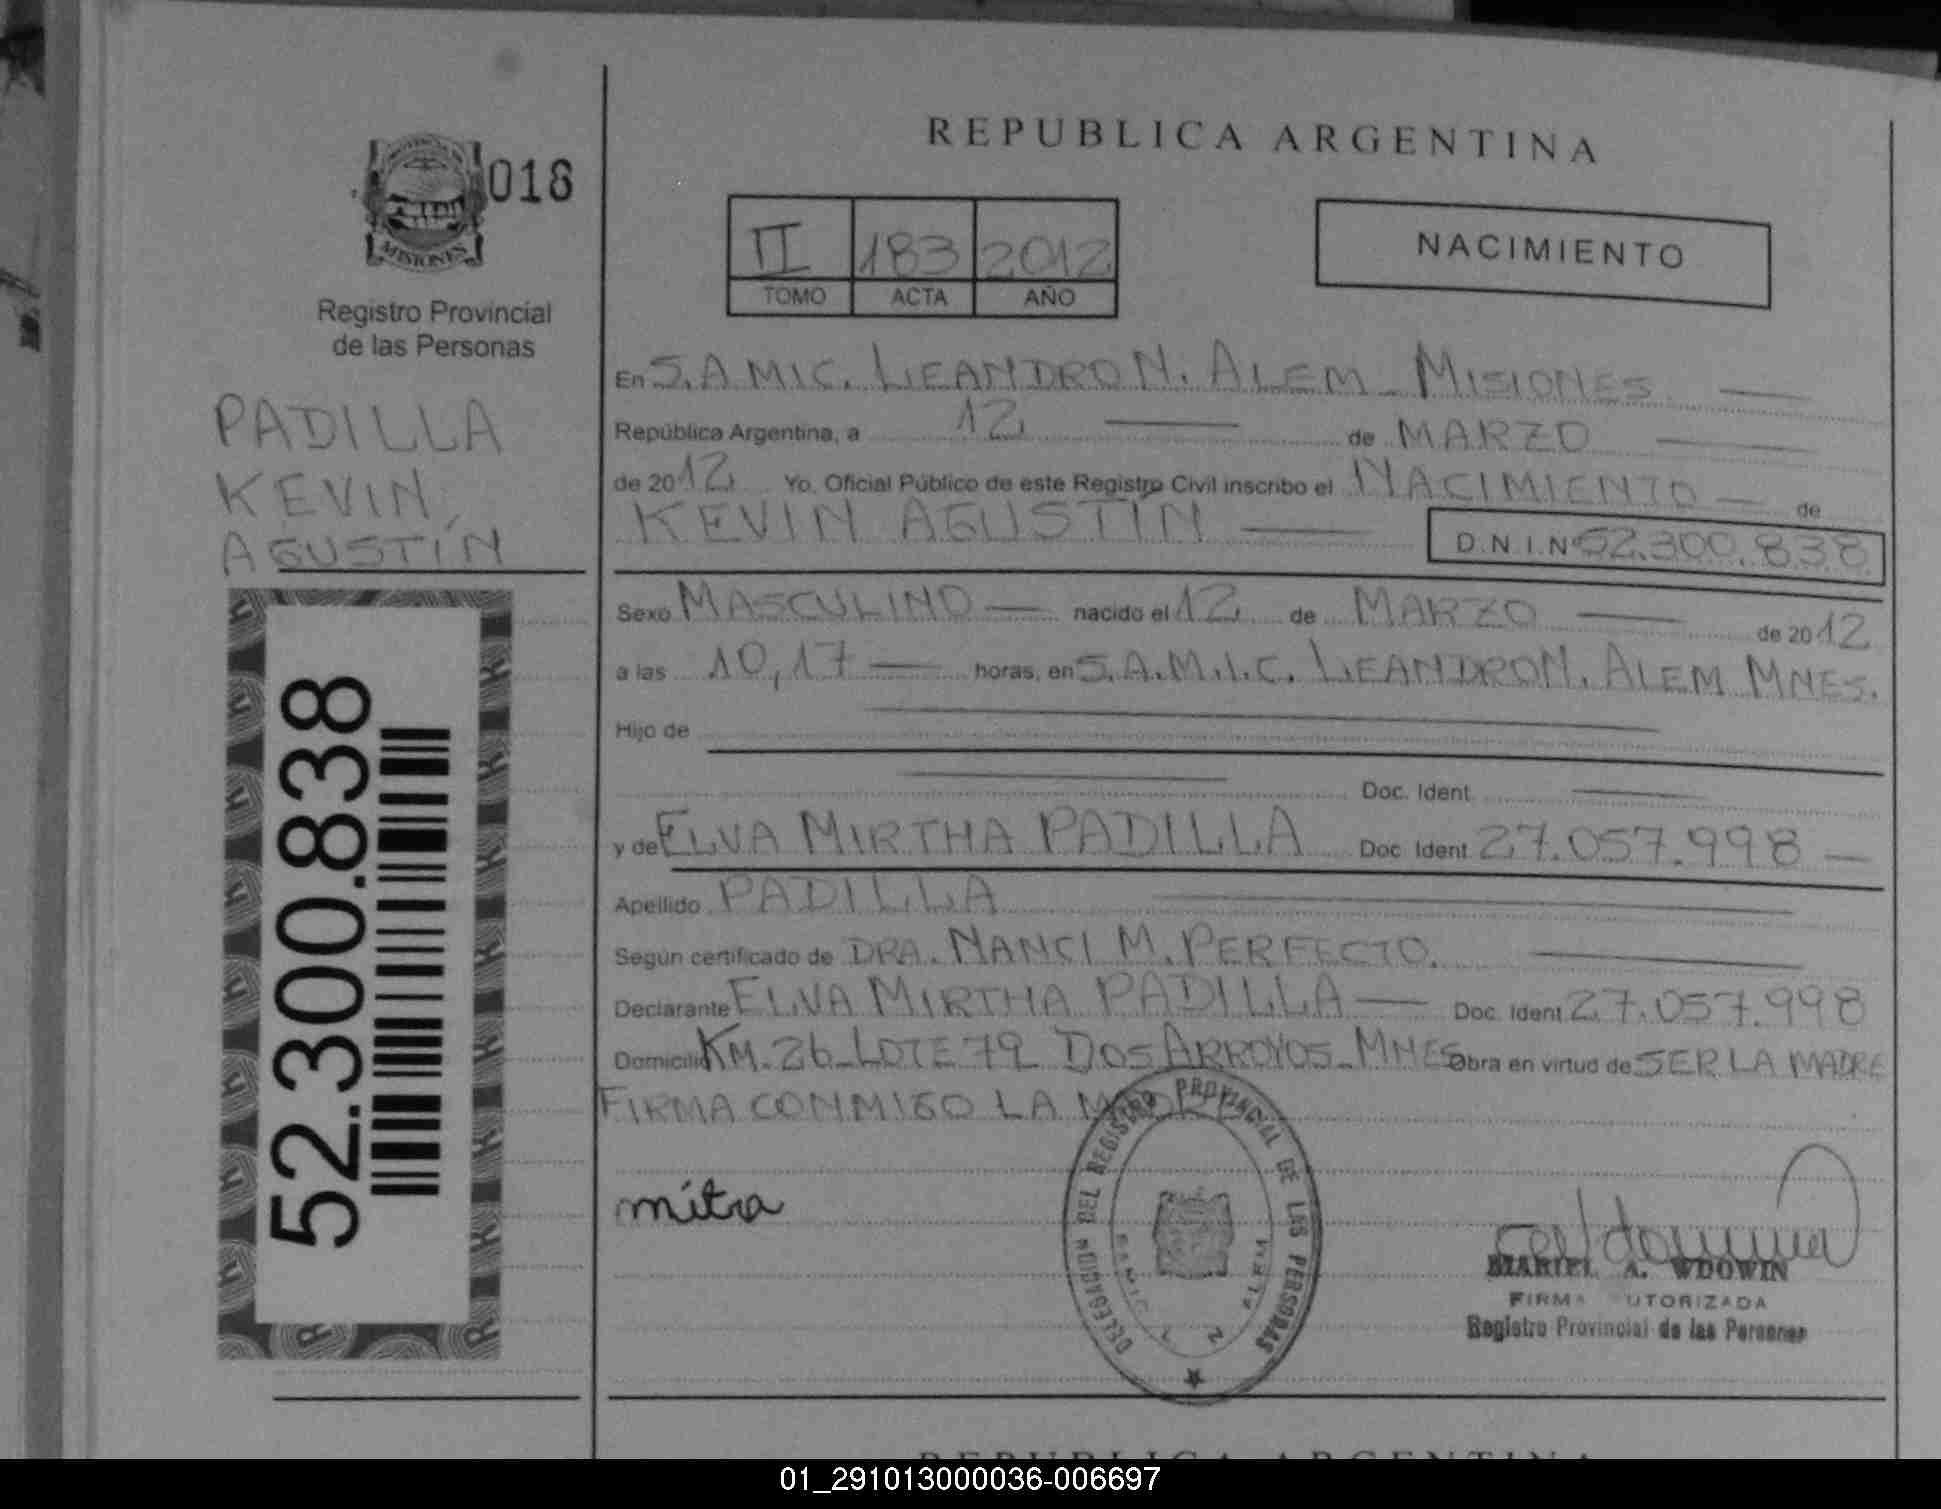 REPUBLICA ARGENTINA
018
MISIONES
Registro Provincial
de las Personas
PADILLA
KEVIN
AGUSTÍN
52.300.838
II 183 2012
TOMO ACTA AÑO
NACIMIENTO
En S.A.MIC. LEANDRO N. ALEM - MISIONES
República Argentina, a 12 de MARZO
de 2012 Yo, Oficial Público de este Registro Civil inscribo el NACIMIENTO de
KEVIN AGUSTÍN D.N.I.Nº 52.300.838
Sexo MASCULINO nacido el 12 de MARZO de 2012
a las 10,17 horas, en S.A.M.I.C. LEANDRO N. ALEM MNES.
Hijo de
Doc. Ident.
y de ELVA MIRTHA PADILLA Doc. Ident. 27.057.998
Apellido PADILLA
Según certificado de DRA. NANCI M. PERFECTO.
Declarante ELVA MIRTHA PADILLA Doc. Ident. 27.057.998
Domicilio KM. 26 - LOTE 79 DOS ARROYOS - MNES Obra en virtud de SER LA MADRE
FIRMA CONMIGO LA MADRE
DELEGACION DEL REGISTRO PROVINCIAL DE LAS PERSONAS
SAMIC L N ALEM
mitra
MARIEL A. WDOWIN
FIRMA AUTORIZADA
Registro Provincial de las Personas
REPUBLICA ARGENTINA
01_291013000036-006697